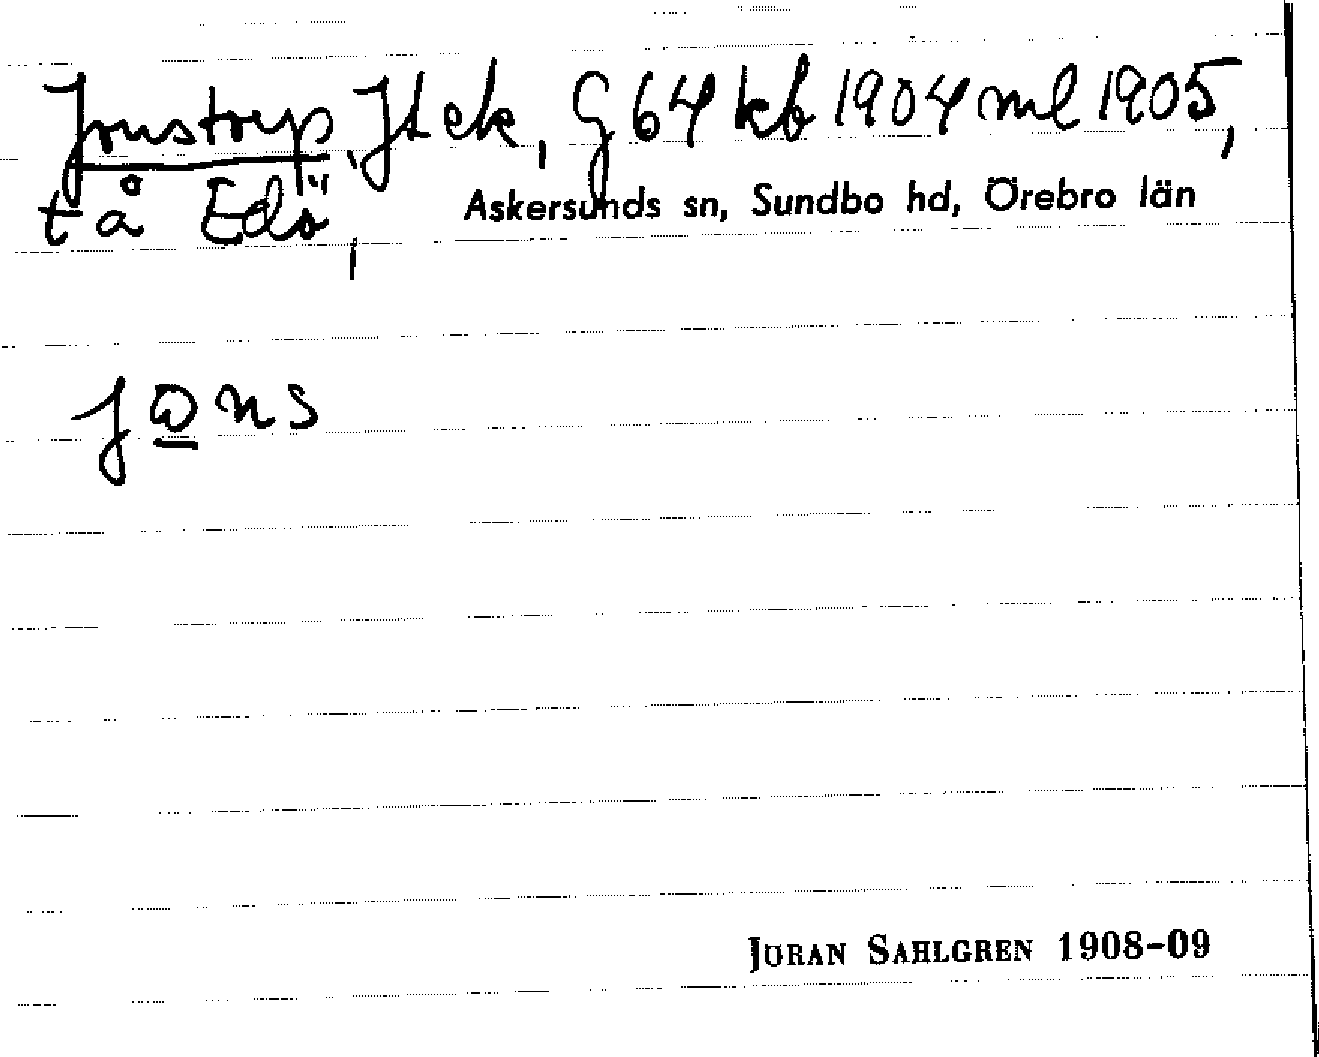 Jonstorp, JLck, G 64 kb 1904 ml 1905,
t å Edö,
Askersunds sn, Sundbo hd, Örebro län
jωns
JÖRAN SAHLGREN 1908-09